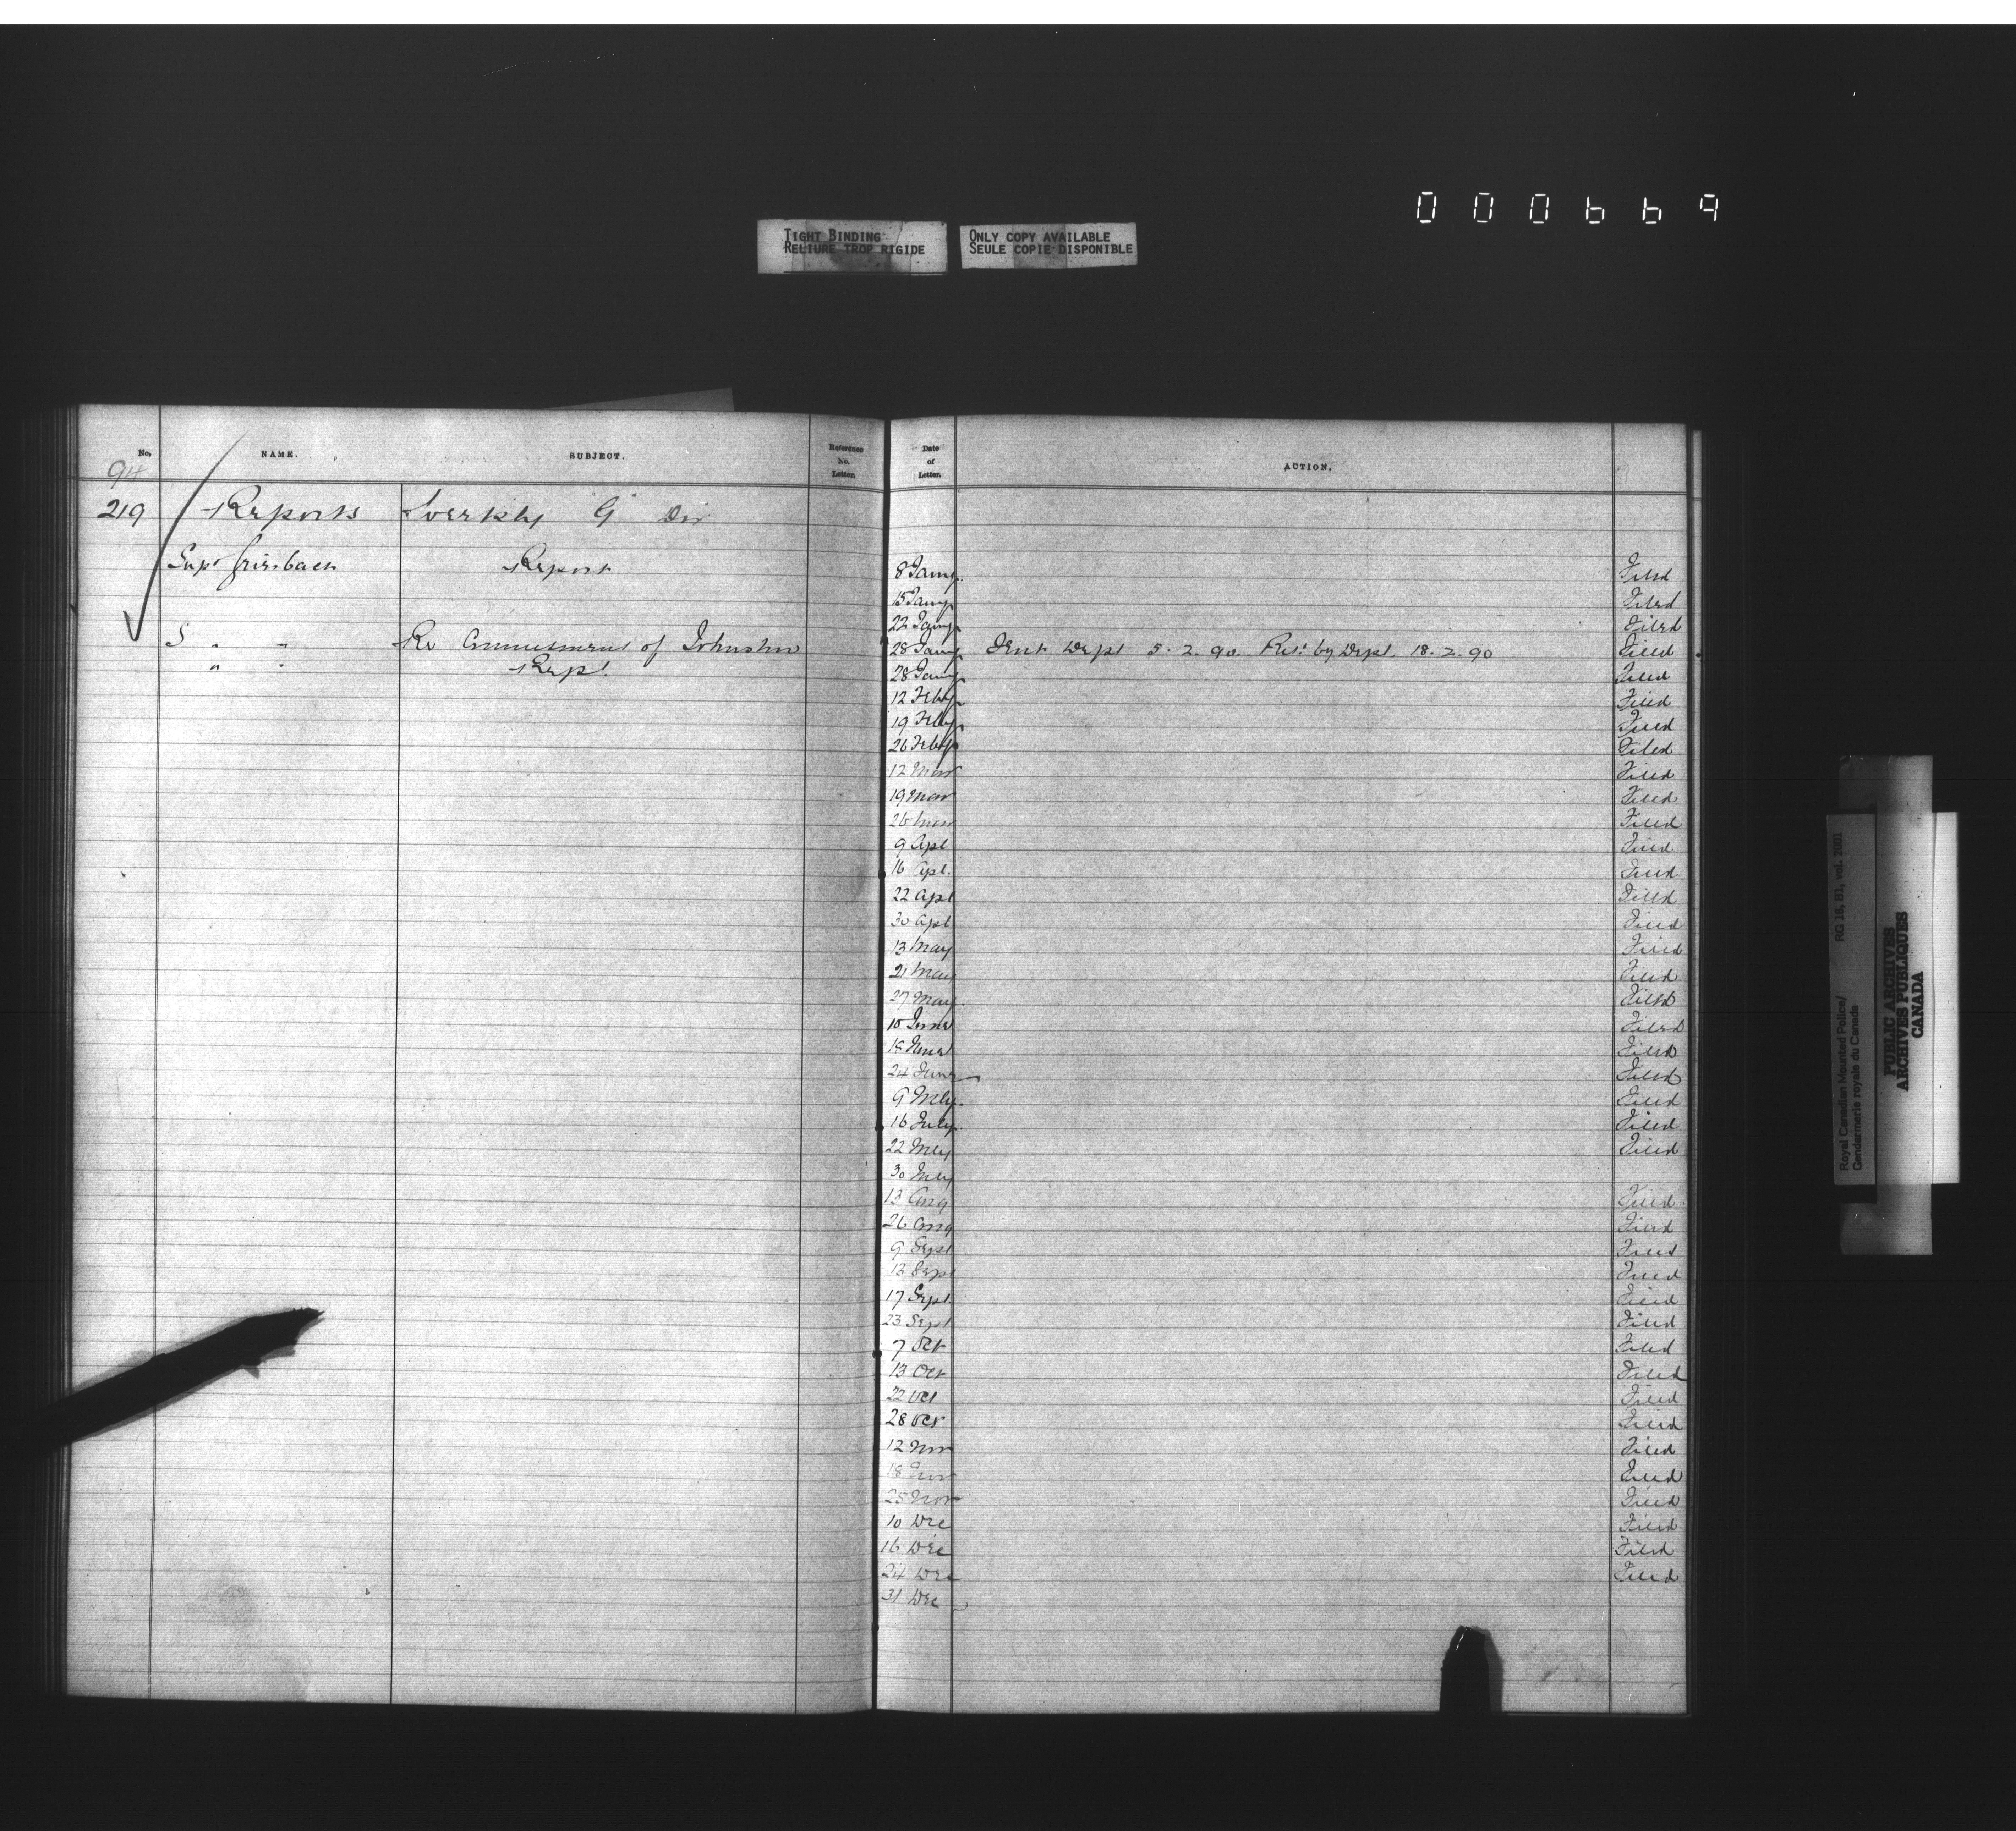 000669
TIGHT BINDING
RELIURE TROP RIGIDE
ONLY COPY AVAILABLE
SEULE COPIE DISPONIBLE
No. NAME. SUBJECT. Reference No. Letter. Date of Letter. ACTION.
94
219 Reports Weekly "G" Div
Supt Griesbach Report 8 Jany. Filed
15 Jany Filed
22 Jany Filed
S " " Re Commitment of Johnston 28 Jany Sent Dept 5.2.90 Ret. by Dept. 18.2.90 Filed
" " Rept. 28 Jany Filed
12 Feby Filed
19 Feby Filed
26 Feby Filed
12 Mar Filed
19 Mar Filed
26 Mar Filed
9 Apl Filed
16 Apl. Filed
22 Apl Filed
30 Apl Filed
13 May Filed
21 May Filed
27 May. Filed
10 June Filed
18 June Filed
24 June Filed
9 July. Filed
16 July. Filed
22 July Filed
30 July
13 Aug Filed
26 Aug Filed
9 Sept Filed
13 Sept Filed
17 Sept. Filed
23 Sept Filed
7 Oct Filed
13 Oct Filed
22 Oct Filed
28 Oct Filed
12 Nov Filed
18 Nov Filed
25 Nov Filed
10 Dec Filed
16 Dec Filed
24 Dec Filed
31 Dec
Royal Canadian Mounted Police/ RG 18, B1, vol. 2001
Gendarmerie royale du Canada
PUBLIC ARCHIVES
ARCHIVES PUBLIQUES
CANADA